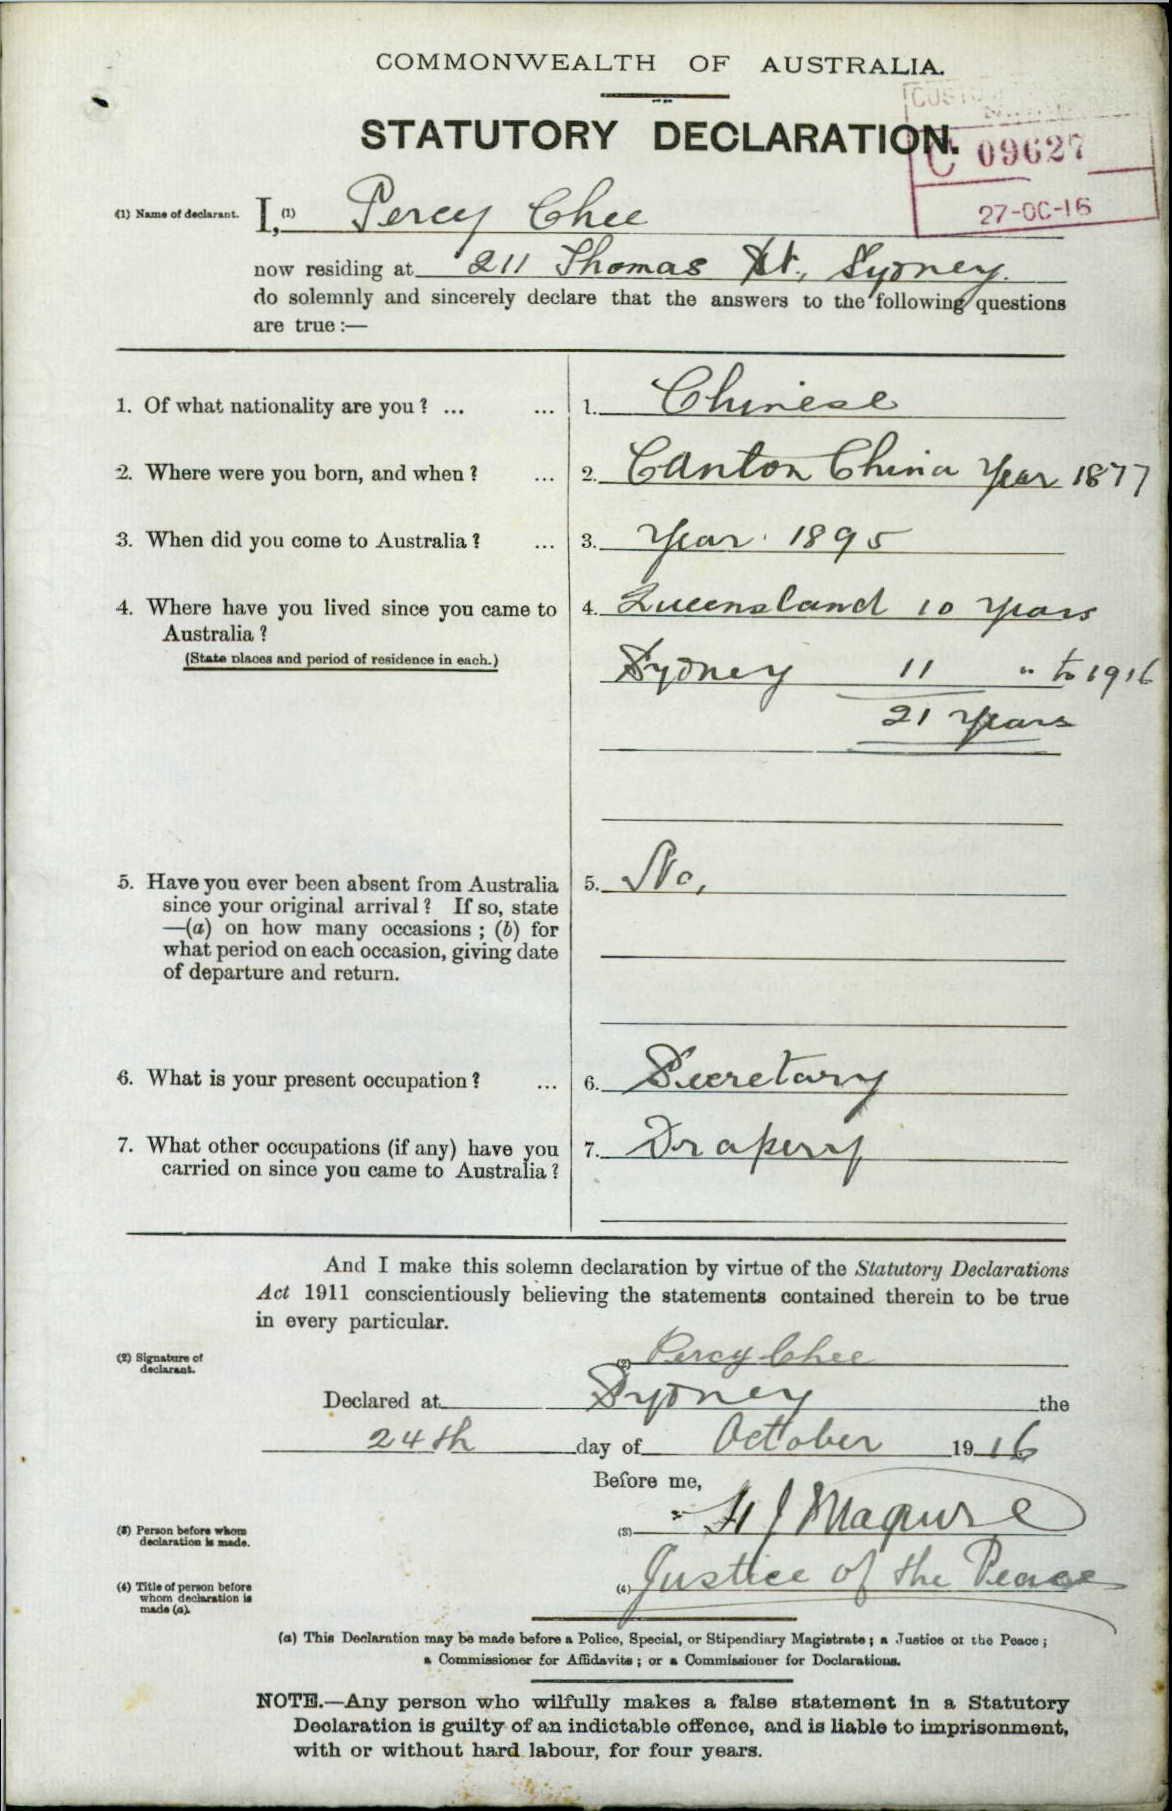 COMMONWEALTH OF AUSTRALIA.
STATUTORY DECLARATION.
C 09627
27-OC-16
(1) Name of declarant. I, (1) Percy Chee
now residing at 211 Thomas St., Sydney.
do solemnly and sincerely declare that the answers to the following questions
are true :—
1. Of what nationality are you ? ... ... 1. Chinese
2. Where were you born, and when ? ... 2. Canton China Year 1877
3. When did you come to Australia ? ... 3. Year 1895
4. Where have you lived since you came to 4. Queensland 10 years
Australia ?
(State places and period of residence in each.) Sydney 11 " to 1916
21 years
5. Have you ever been absent from Australia 5. No,
since your original arrival ? If so, state
—(a) on how many occasions ; (b) for
what period on each occasion, giving date
of departure and return.
6. What is your present occupation ? ... 6. Secretary
7. What other occupations (if any) have you 7. Drapery
carried on since you came to Australia ?
And I make this solemn declaration by virtue of the Statutory Declarations
Act 1911 conscientiously believing the statements contained therein to be true
in every particular.
(2) Signature of
declarant. (2) Percy Chee
Declared at Sydney the
24th day of October 1916
Before me,
(3) Person before whom
declaration is made. (3) J Maguire
(4) Title of person before
whom declaration is
made (a). (4) Justice of the Peace
(a) This Declaration may be made before a Police, Special, or Stipendiary Magistrate ; a Justice of the Peace ;
a Commissioner for Affidavits ; or a Commissioner for Declarations.
NOTE.—Any person who wilfully makes a false statement in a Statutory
Declaration is guilty of an indictable offence, and is liable to imprisonment,
with or without hard labour, for four years.